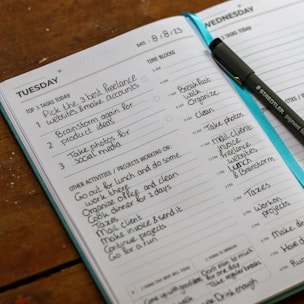 WEDNESDAY
DATE 8/8/23
TUESDAY
TIME BLOCKS
TOP 3 TASKS TODAY
1 Pick the 3 best freelance
websites & make accounts
2 Brainstorm again for
product ideas
3 Take photos for
social media
OTHER ACTIVITIES / PROJECTS WORKING ON:
Go out for lunch and do some
work there
Organize office and clean
Cook dinner for 2 days
Taxes
Mail client
Make invoice & send it
Continue projects
Go for a run
Breakfast
walk
Organize
clean
Take photos
Mail client
invoice
freelance
websites
Lunch
& brainstorm
Taxes
Work on
projects
STAEDTLER
Drink enough